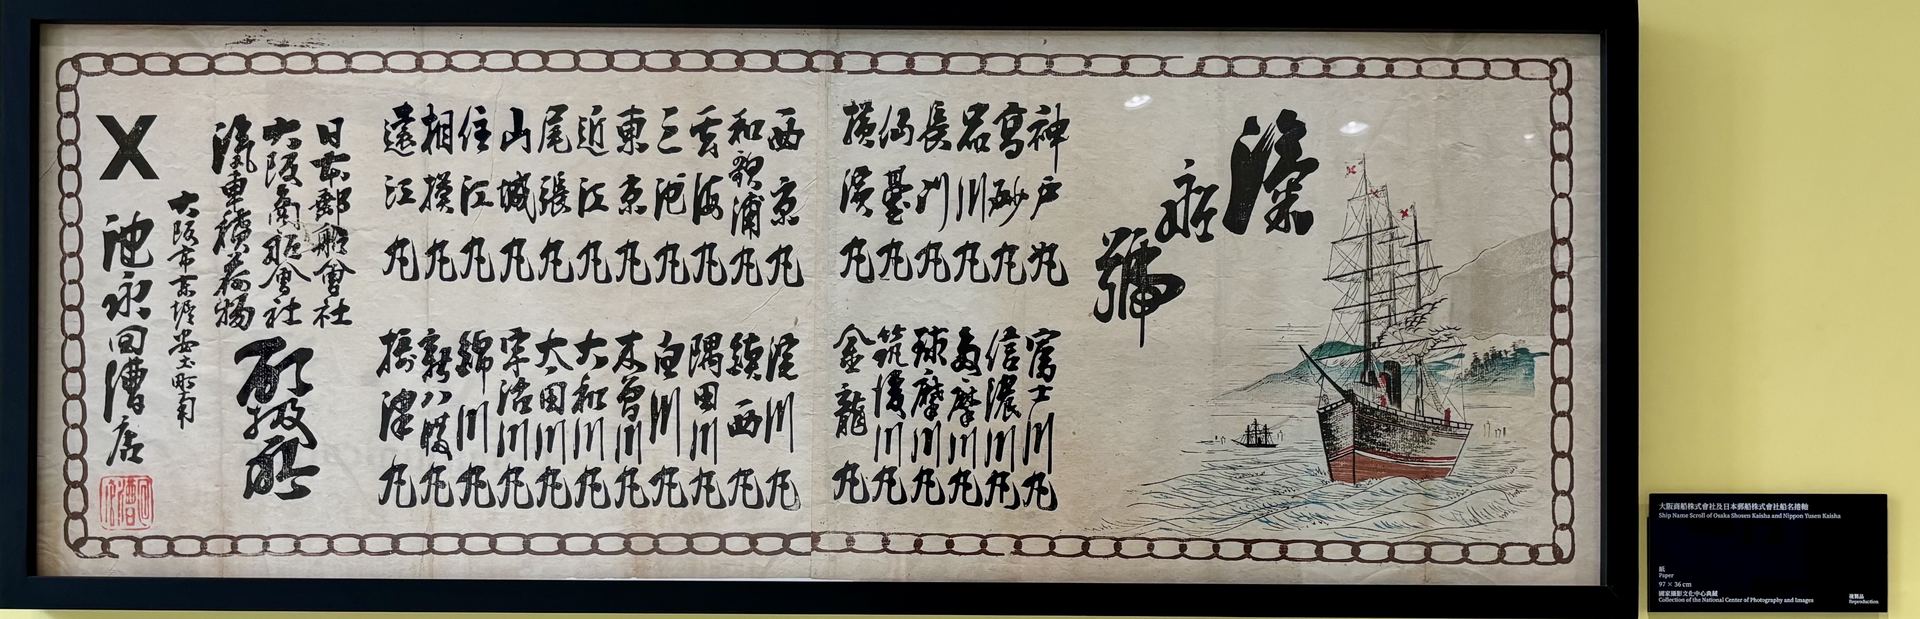 滊船號
神戸丸
高砂丸
品川丸
長門丸
仙臺丸
横濱丸
富士川丸
信濃川丸
多摩川丸
球摩川丸
筑後川丸
金龍丸
西京丸
和歌浦丸
雲海丸
三池丸
東京丸
近江丸
尾張丸
山城丸
住江丸
相模丸
遠江丸
淀川丸
鎮西丸
隅田川丸
白川丸
木曽川丸
大和川丸
太田川丸
宇治川丸
錦川丸
新八幡丸
摂津丸
日本郵船會社
大阪商船會社
滊車積荷物
取扱所
大阪市東堀安土町南
X 池永回漕店
大阪商船株式會社及日本郵船株式會社船名捲軸
Ship Name Scroll of Osaka Shosen Kaisha and Nippon Yusen Kaisha
紙
Paper
97 × 36 cm
國家攝影文化中心典藏
Collection of the National Center of Photography and Images
複製品
Reproduction